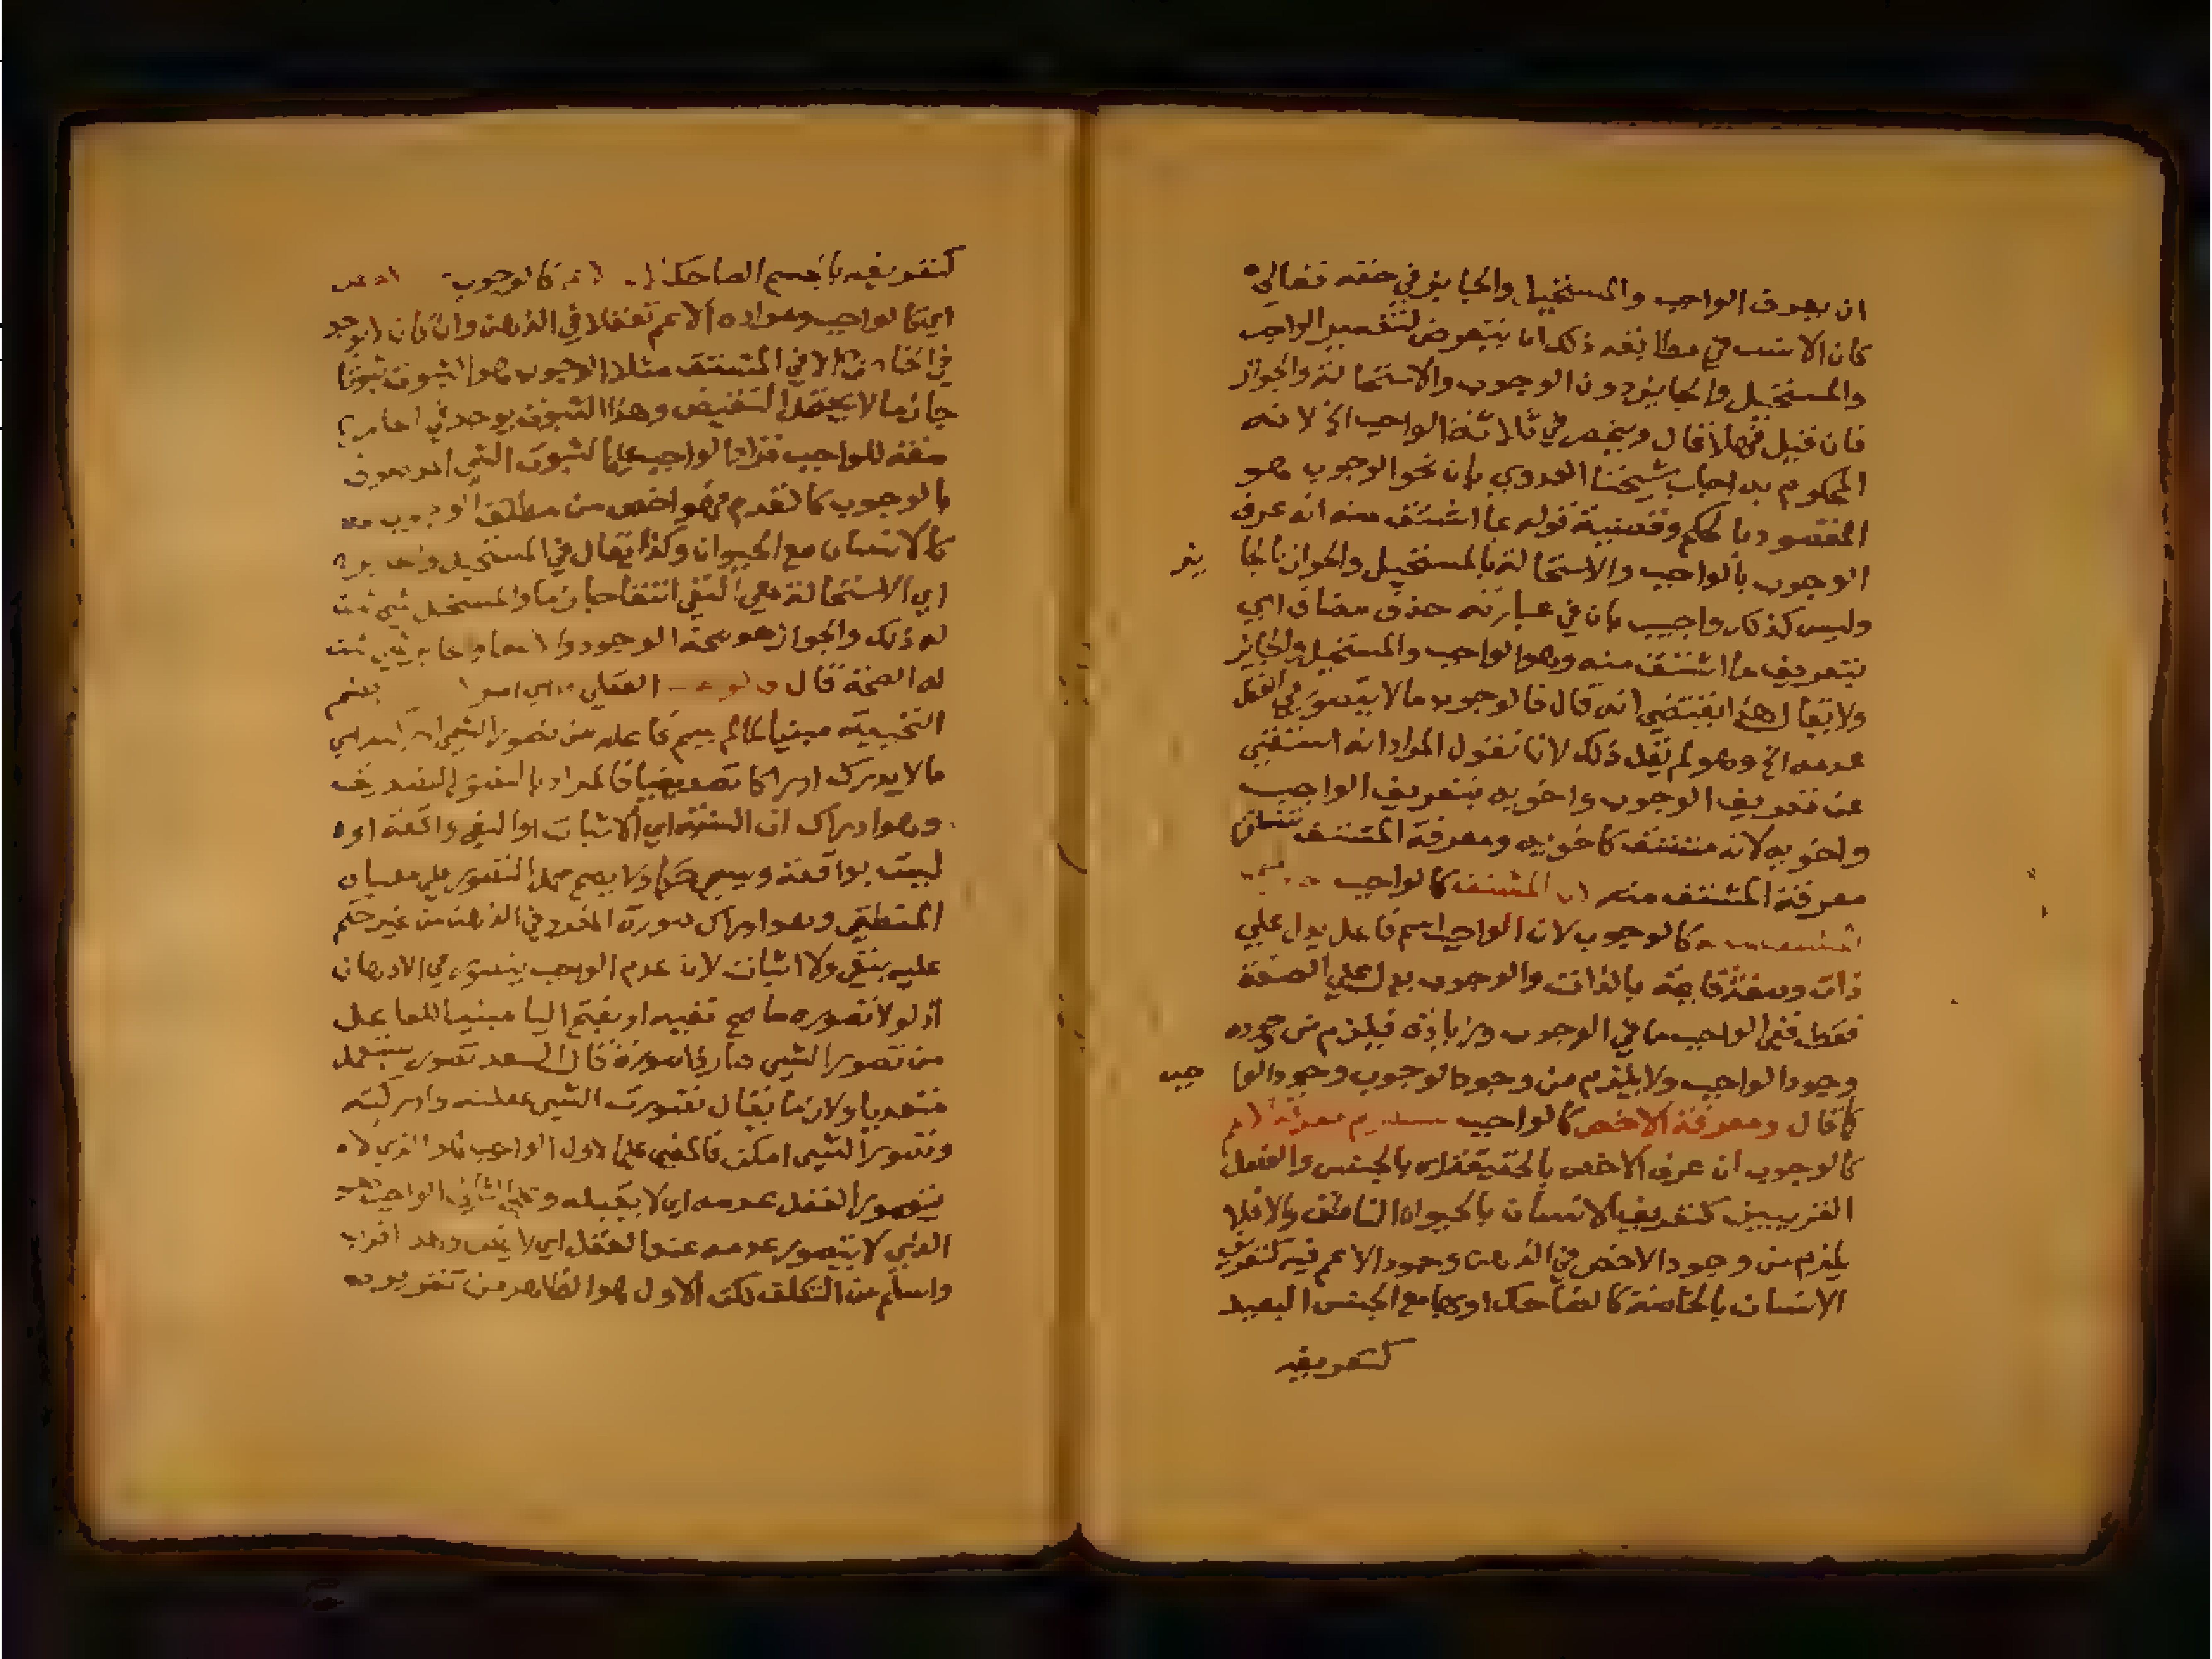 ان يعرف الواجب والمستحيل والجايز في حقه تعالى
كان الانسب في مطابقه ذلك ان يتعرض لتفسير الواجب
والمستحيل والجايز دون الوجوب والاستحالة والجواز
فان قيل فهلا قال وينحصر في ثلاثة الواجب الخ لانه
المحكوم به اجاب شيخنا العدوي بان نحو الوجوب هو
المقصود بالحكم وقضية قوله عما اشتق منه انه عرف
الوجوب بالواجب والاستحالة بالمستحيل والجواز بالجا
يز
وليس كذلك واجيب بان في عبارته حذف مضاف اي
بتعريف ما اشتق منه وهو الواجب والمستحيل والجايز
ولا يقال هذا يقتضي انه قال فالوجوب ما لا يتصور في العقل
عدمه الخ وهو لم يقل ذلك لانا نقول المراد انه استغني
عن تعريف الوجوب واخويه بتعريف الواجب
واخويه لانه مشتق كاخويه ومعرفة المشتق تستلزم
معرفة المشتق منه لان المشتق كالواجب
كالوجوب لان الواجب اسم فاعل يدل علي
ذات وصفة قايمة بالذات والوجوب يدل علي الصفة
فقط ففي الواجب ما في الوجوب وزيادة فيلزم من وجوده
وجود الواجب ولا يلزم من وجود الوجوب وجود الوا
جب
كما قال ومعرفة الاخص كالواجب تستلزم معرفة الاعم
كالوجوب ان عرف الاخص بالحقيقة اي بالجنس والفصل
القريبين كتعريف الانسان بالحيوان الناطق والا فلا
يلزم من وجود الاخص في الذهن وجود الاعم فيه كتعريف
الانسان بالخاصة كالضاحك او بها مع الجنس البعيد
كتعريفه
كتعريفه بالجسم الضاحك كالوجوب
اي كالواجب ومراده الاعم تعقلا في الذهن وان كان
في الخارج الا في المشتق مثلا الوجوب هو الثبوت ثبوتا
جازما لا يحتمل النقيض وهذا الثبوت يوجد في
صفة للواجب فزاد الواجب علي الثبوت الشي الموصوف
بالوجوب كما تقدم فهو اخص من مطلق الوجوب
كالانسان مع الحيوان وكذا يقال في المستحيل
اي الاستحالة هي النفي انتفا جازما والمستحيل شي ثبت
له ذلك والجواز هو صحة الوجود والجايز شي ثبت
له الصحة قال العقلي بضم
التحتية مبنيا لما لم يسم فاعله من تصور الشي ادركه اي
ما لا يدرك ادراكا تصديقيا فالمراد بالتصور التصديق
وهو ادراك ان النسبة اي الاثبات او النفي واقعة او
ليست بواقعة ويسمي حكما ولا يصح حمل التصور علي معناه
المنطقي وهو ادراك صورة المفرد في الذهن من غير حكم
عليه بنفي ولا اثبات لان عدم الواجب يتصور في الاذهان
اذ لولا تصوره ما صح نفيه او بفتح اليا مبنيا للفاعل
من تصور الشي صار ذا صورة قال السعد تصور يستعمل
متعديا ولازما يقال تصورت الشي عقلته وادركته
وتصور الشي امكن فالمعني علي الاول الواجب هو الذي لا
يتصور العقل عدمه اي لا يقبله وعلي الثاني الواجب هو
الذي لا يتصور عدمه عند العقل اي لا يمكن وهذا اقرب
واسلم من التكلف لكن الاول هو الظاهر من تقريره